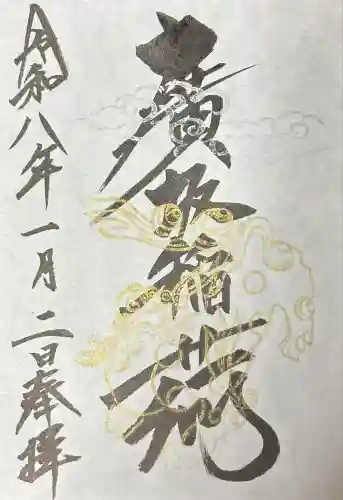 廣坂稲荷
令和八年一月二日奉拝